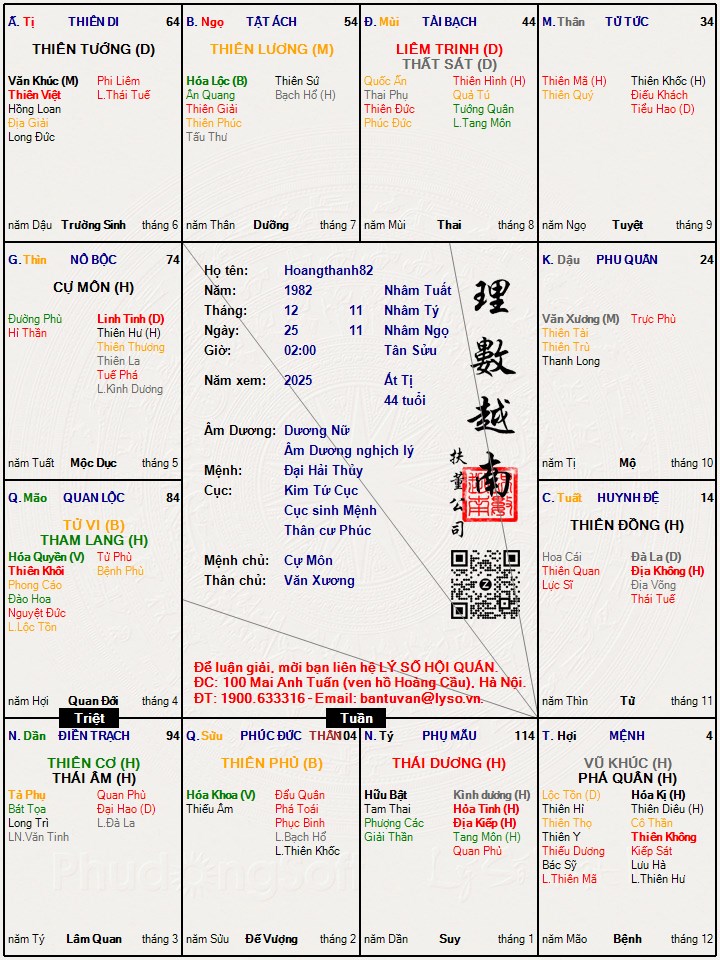 Ấ. Tị THIÊN DI 64
THIÊN TƯỚNG (D)
Văn Khúc (M) Phi Liêm
Thiên Việt L.Thái Tuế
Hồng Loan
Địa Giải
Long Đức
năm Dậu Trường Sinh tháng 6
B. Ngọ TẬT ÁCH 54
THIÊN LƯƠNG (M)
Hóa Lộc (B) Thiên Sứ
Ân Quang Bạch Hổ (H)
Thiên Giải
Thiên Phúc
Tấu Thư
năm Thân Dưỡng tháng 7
Đ. Mùi TÀI BẠCH 44
LIÊM TRINH (D)
THẤT SÁT (D)
Quốc Ấn Thiên Hình (H)
Thai Phụ Quả Tú
Thiên Đức Tướng Quân
Phúc Đức L.Tang Môn
năm Mùi Thai tháng 8
M. Thân TỬ TỨC 34
Thiên Mã (H) Thiên Khốc (H)
Thiên Quý Điếu Khách
Tiểu Hao (D)
năm Ngọ Tuyệt tháng 9
G. Thìn NÔ BỘC 74
CỰ MÔN (H)
Đường Phù Linh Tinh (D)
Hỉ Thần Thiên Hư (H)
Thiên Thương
Thiên La
Tuế Phá
L.Kình Dương
năm Tuất Mộc Dục tháng 5
Họ tên: Hoangthanh82
Năm: 1982 Nhâm Tuất
Tháng: 12 11 Nhâm Tý
Ngày: 25 11 Nhâm Ngọ
Giờ: 02:00 Tân Sửu
Năm xem: 2025 Ất Tị
44 tuổi
Âm Dương: Dương Nữ
Âm Dương nghịch lý
Mệnh: Đại Hải Thủy
Cục: Kim Tứ Cục
Cục sinh Mệnh
Thân cư Phúc
Mệnh chủ: Cự Môn
Thân chủ: Văn Xương
理數越南
扶董公司
Để luận giải, mời bạn liên hệ LÝ SỐ HỘI QUÁN.
ĐC: 100 Mai Anh Tuấn (ven hồ Hoàng Cầu), Hà Nội.
ĐT: 1900.633316 - Email: bantuvan@lyso.vn.
K. Dậu PHU QUÂN 24
Văn Xương (M) Trực Phù
Thiên Tài
Thiên Trù
Thanh Long
năm Tị Mộ tháng 10
Q. Mão QUAN LỘC 84
TỬ VI (B)
THAM LANG (H)
Hóa Quyền (V) Tử Phù
Thiên Khôi Bệnh Phù
Phong Cáo
Đào Hoa
Nguyệt Đức
L.Lộc Tồn
năm Hợi Quan Đới tháng 4
C. Tuất HUYNH ĐỆ 14
THIÊN ĐỒNG (H)
Hoa Cái Đà La (D)
Thiên Quan Địa Không (H)
Lực Sĩ Địa Võng
Thái Tuế
năm Thìn Tử tháng 11
Triệt
Tuần
N. Dần ĐIỀN TRẠCH 94
THIÊN CƠ (H)
THÁI ÂM (H)
Tả Phụ Quan Phủ
Bát Tọa Đại Hao (D)
Long Trì L.Đà La
LN.Văn Tinh
năm Tý Lâm Quan tháng 3
Q. Sửu PHÚC ĐỨC THÂN 104
THIÊN PHỦ (B)
Hóa Khoa (V) Đẩu Quân
Thiếu Âm Phá Toái
Phục Binh
L.Bạch Hổ
L.Thiên Khốc
năm Sửu Đế Vượng tháng 2
N. Tý PHỤ MẪU 114
THÁI DƯƠNG (H)
Hữu Bật Kình dương (H)
Tam Thai Hỏa Tinh (H)
Phượng Các Địa Kiếp (H)
Giải Thần Tang Môn (H)
Quan Phù
năm Dần Suy tháng 1
T. Hợi MỆNH 4
VŨ KHÚC (H)
PHÁ QUÂN (H)
Lộc Tồn (D) Hóa Kị (H)
Thiên Hỉ Thiên Diêu (H)
Thiên Thọ Cô Thần
Thiên Y Thiên Không
Thiếu Dương Kiếp Sát
Bác Sỹ Lưu Hà
L.Thiên Mã L.Thiên Hư
năm Mão Bệnh tháng 12